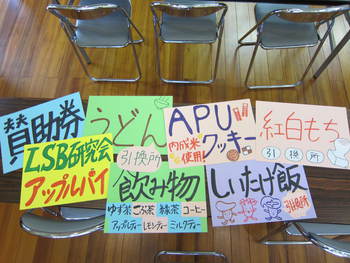 賛助券
うどん
引換所
APU
内成米使用!
クッキー
紅白もち
引換所
LSB研究会
アップルパイ
飲み物
ゆず茶 ごぼう茶 緑茶 コーヒー
アップルティー レモンティー ミルクティー
しいたけ飯
引換所